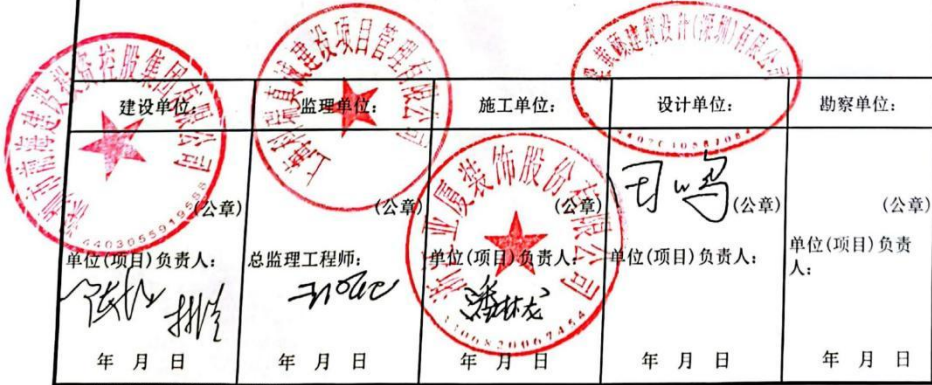 建设单位:
监理单位:
施工单位:
设计单位:
勘察单位:
(公章)
(公章)
(公章)
(公章)
(公章)
单位(项目)负责人:
总监理工程师:
单位(项目)负责人:
单位(项目)负责人:
单位(项目)负责
人:
潘林龙
年 月 日
年 月 日
年 月 日
年 月 日
年 月 日
建设投资控股集团有限公司
建设项目管理有限公司
亚厦装饰股份有限公司
建筑设计(深圳)有限公司